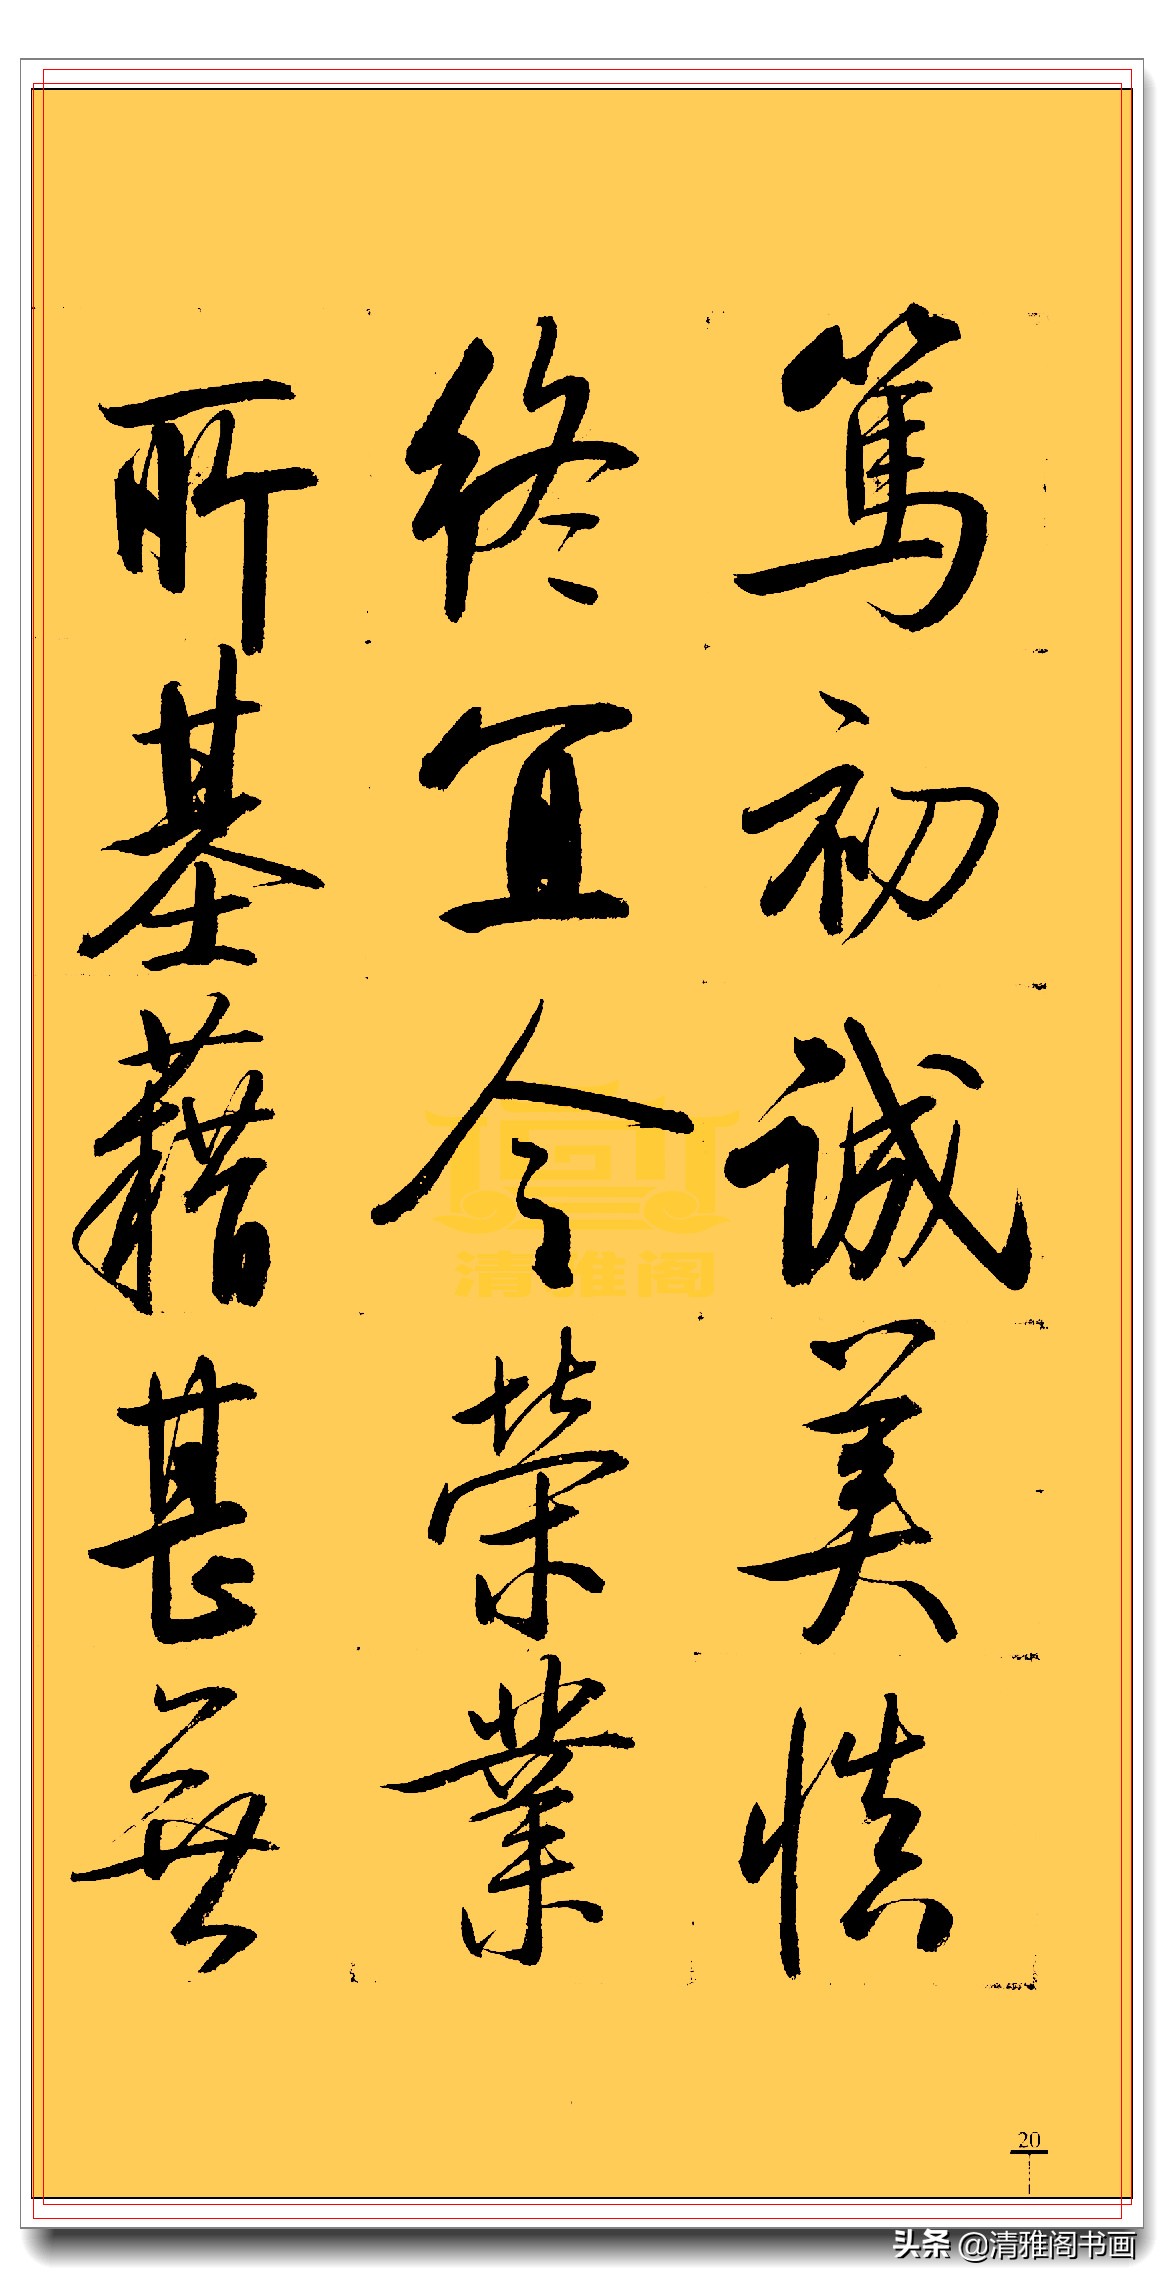 篤初誠美慎
終宜令榮業
所基藉甚無
清雅阁
20
头条 @清雅阁书画